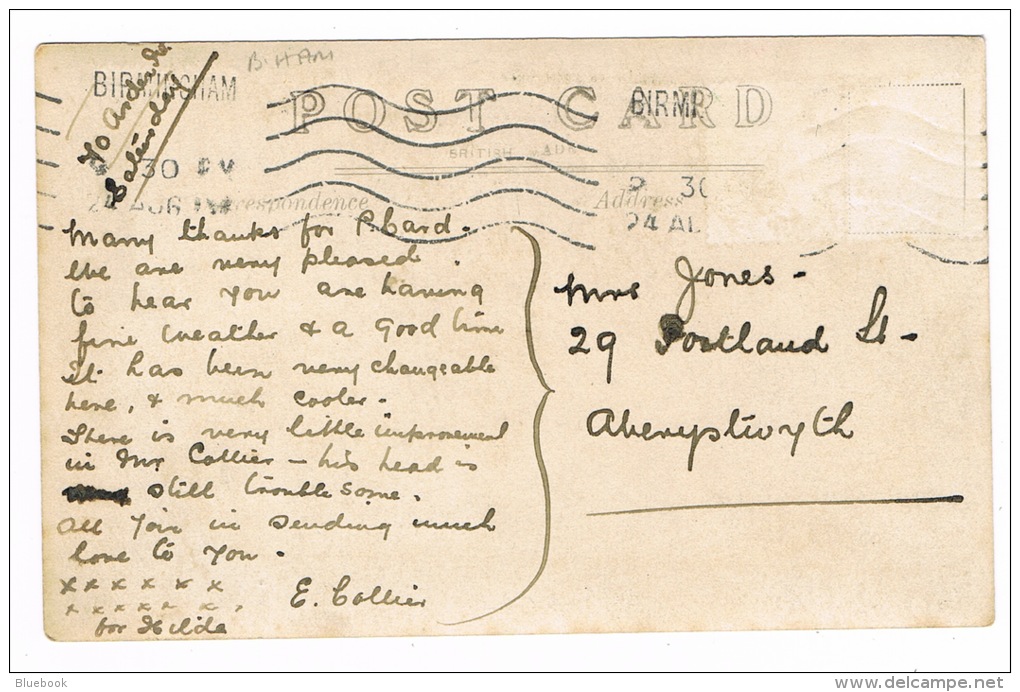 B'HAM
BIRMINGHAM
BIRMI
POST CARD
BRITISH MADE
30 PM
24 AUG
30
24 AU
Saturday
Correspondence
Address
Many thanks for P.Card.
We are very pleased
to hear you are having
fine weather & a good time
It has been very changeable
here, & much cooler.
There is very little improvement
in Mr Collier – his head is
still troublesome.
All join in sending much
love to you.
x x x x x x
x x x x x x
for Hilda
E. Collier
Mrs Jones -
29 Portland St -
Aberystwyth
Bluebook
www.delcampe.net